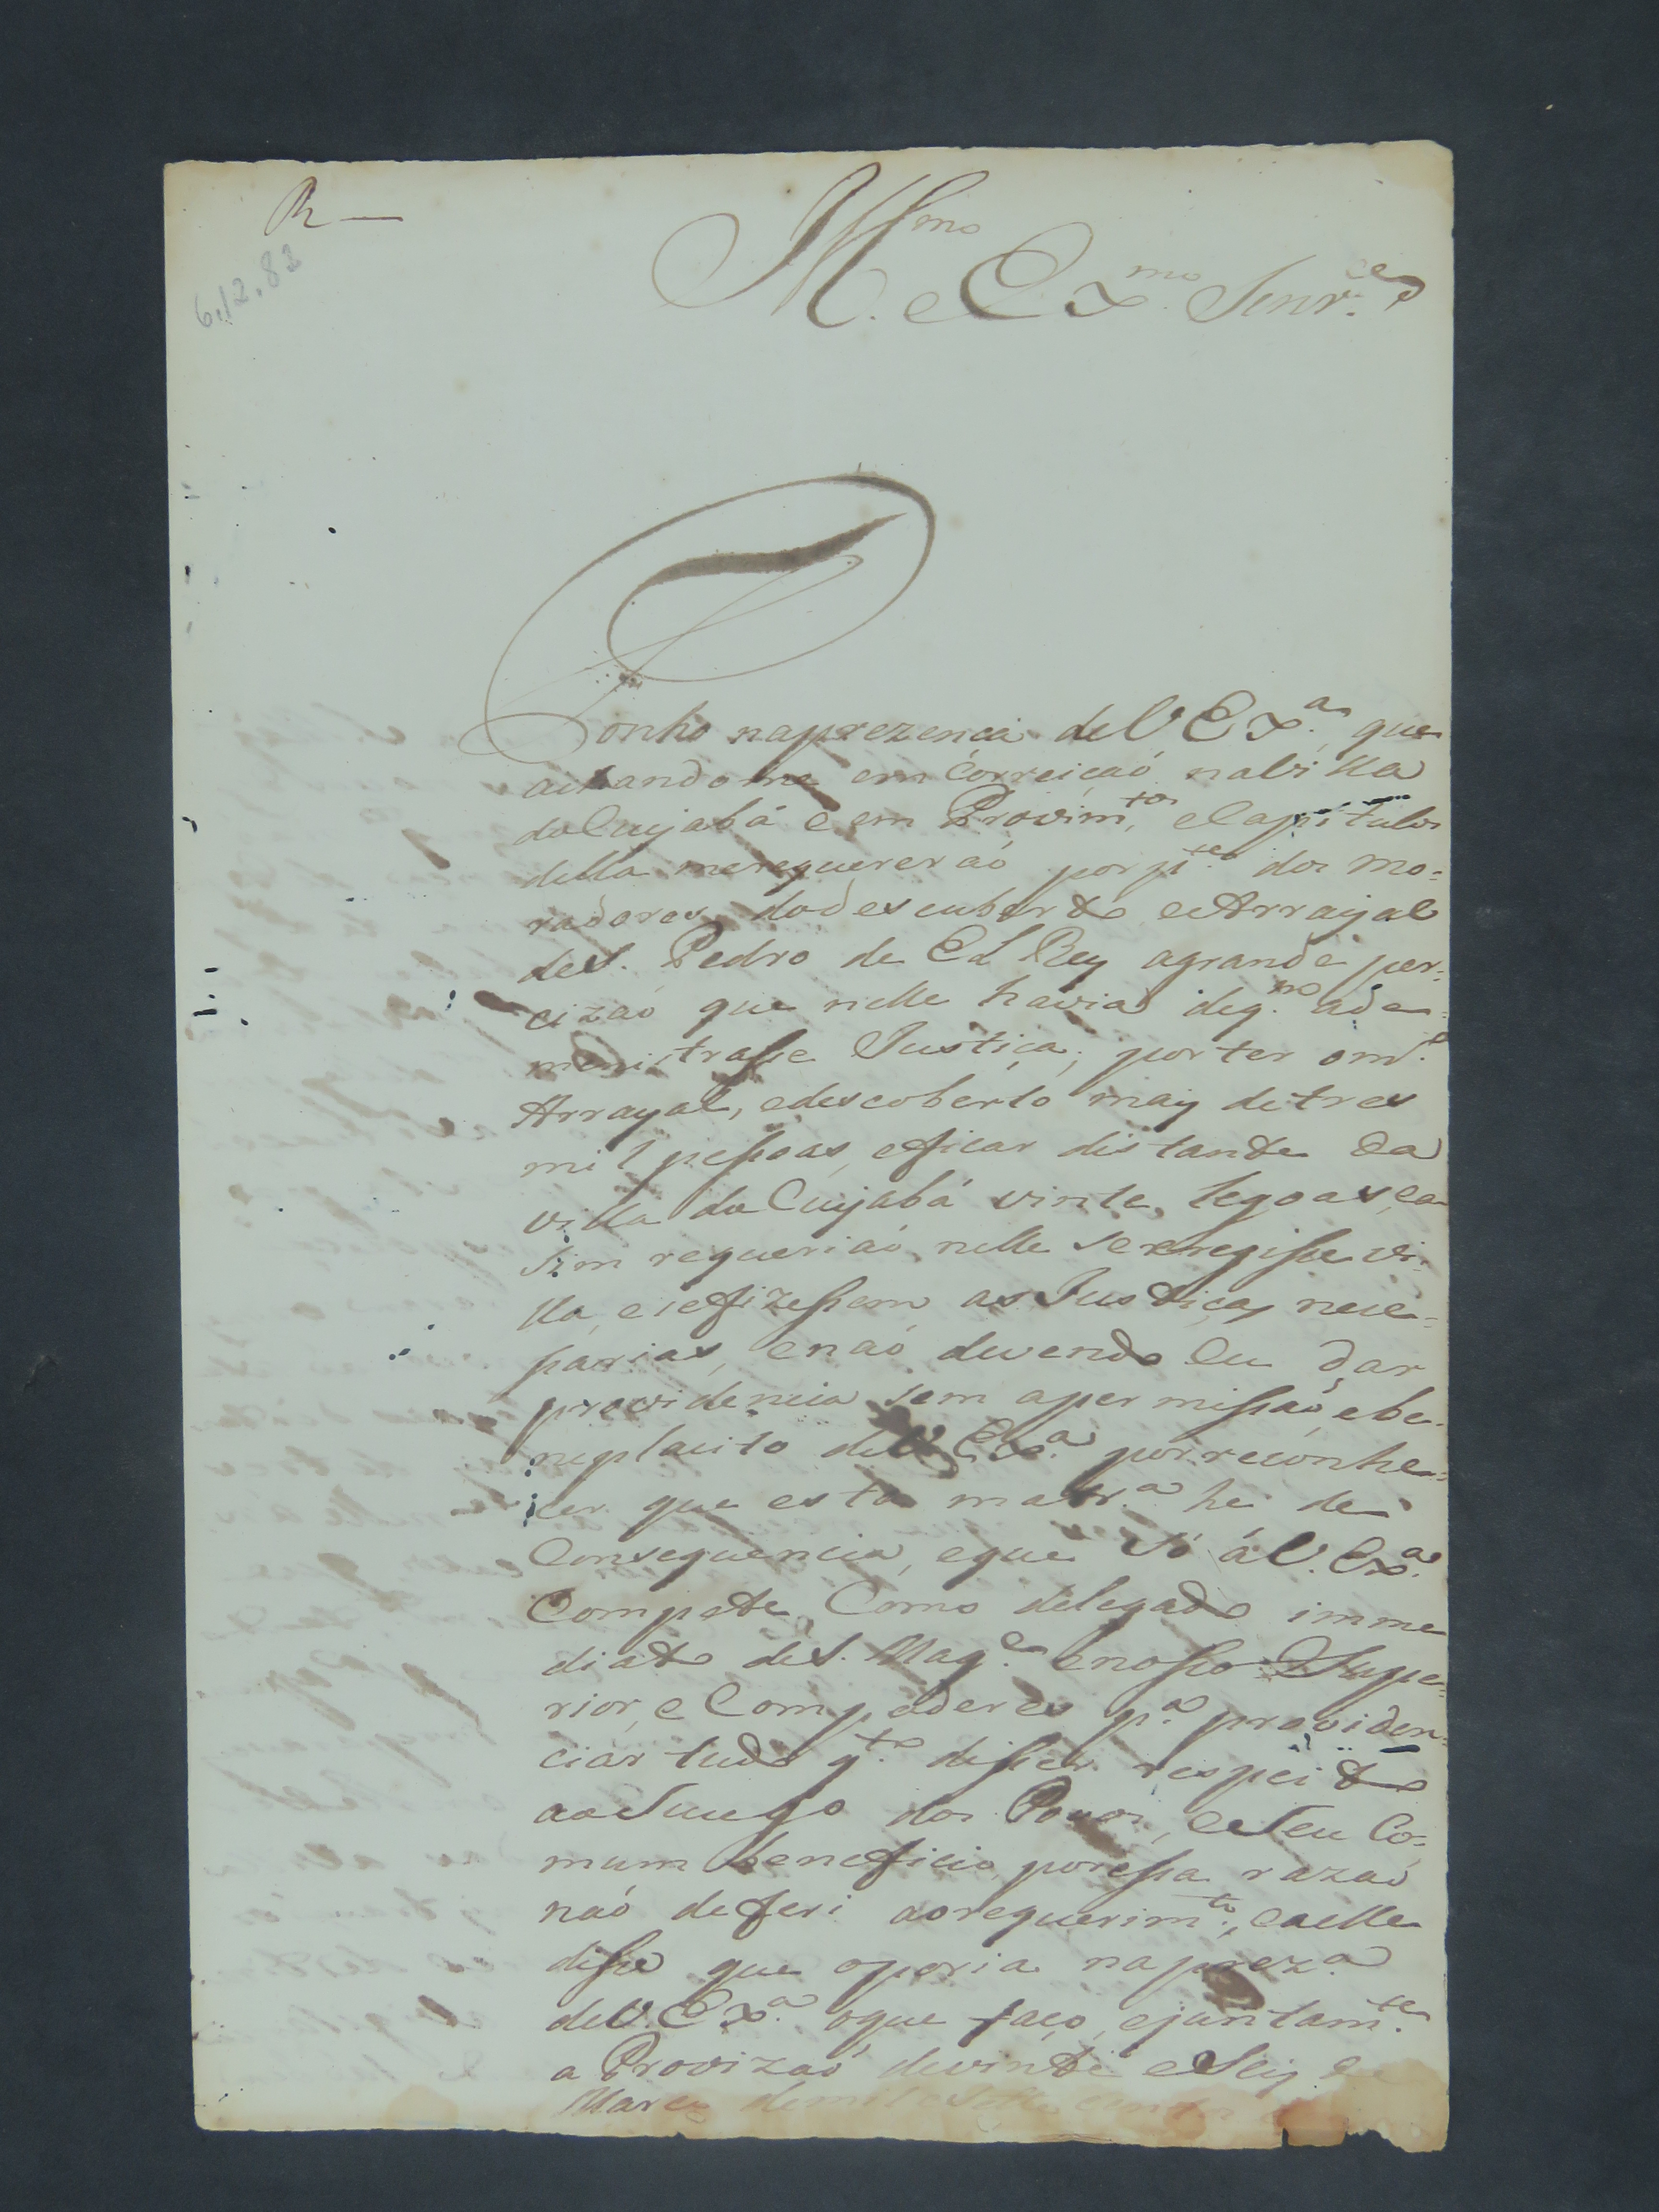 R —
6.12.82
Ill.mo e Ex.mo Senr.es
Ponho naprezença deV Ex.as que
achandome em Correiçaõ naVilla
doCuyabá e em Provim.tos, eCapitulos
della merequereraõ porp.te dos Mo=
radores, dodescuberto eArrayal
deS. Pedro de El Rey agrande per=
cizaõ que nelle havia deq.m ade=
menistrasse Justiça, porter om.o
Arrayal, edescoberto mais detres
mil pessoas, eficar distante da
Villa doCuyabá vinte legoas, ea
sim requeriaõ, nelle seerregisse Vi=
lla, esefizessem as Justiças nece=
sarias, enaõ devendo Eu dar
providencia sem apermissaõ ebe=
neplacito deV. Ex.as porreconhe=
cer que esta mater.a he de
Consequencia, eque só áV. Ex.as
Compete, Como delegado imme
diato deS. Mag.e enosso Supe=
rior, eCompoderes p.a providen=
ciar tudo q.to disser respeito
aoSucego dos Povos, eSeu Co=
mum beneficio, poressa razaõ
naõ deferi aorequerim.to, eaelle
disse que oporia naprez.a
deV. Ex.as oque faço, ejuntam.te
a Provizaõ devinte eSeis de
Março demil eSette centos